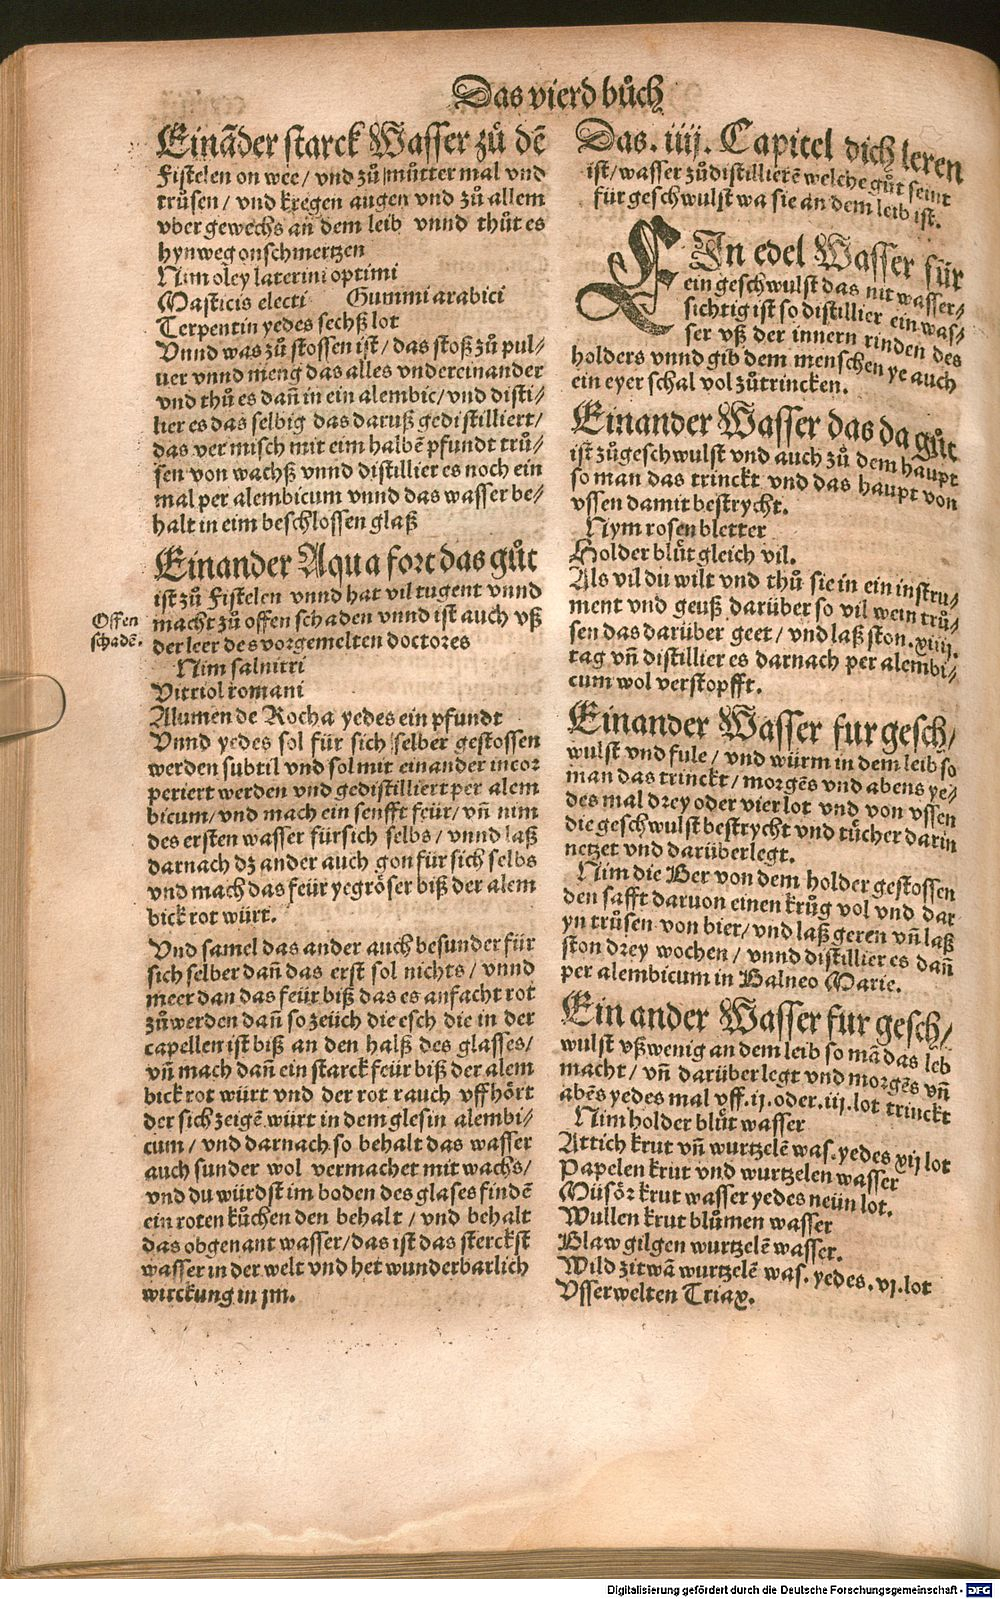 Das vierd bůch
Einãder starck Wasser zů dẽ
Fistelen on wee / vnd zů můtter mal vnd
trůsen / vnd kregen augen vnd zů allem
vber gewechs an dem leib vnnd thůt es
hynweg on schmertzen
Nim oley laterini optimi
Masticis electi Gummi arabici
Terpentin yedes sechß lot
Vnnd was zů stossen ist / das stoß zů pul⸗
uer vnnd meng das alles vndereinander
vnd thů es dañ in ein alembic / vnd disti⸗
lier es das selbig das daruß gedistilliert /
das vermisch mit eim halbẽ pfundt trů⸗
sen von wachß vnnd distillier es noch ein
mal per alembicum vnnd das wasser be⸗
halt in eim beschlossen glaß
Ein ander Aqua fort das gůt
ist zů Fistelen vnnd hat vil tugent vnnd
macht zů offen schaden vnnd ist auch vß
der leer des vorgemelten doctores
Offen
schadẽ.
Nim salnitri
Vitriol romani
Alumen de Rocha yedes ein pfundt
Vnnd yedes sol für sich selber gestossen
werden subtil vnd sol mit einander incor
periert werden vnd gedistilliert per alem
bicum / vnd mach ein senfft feür / vñ nim
des ersten wasser fürsich selbs / vnnd laß
darnach dz ander auch gon für sich selbs
vnd mach das feür ye gröser biß der alem
bick rot würt.
Vnd samel das ander auch besunder für
sich selber dañ das erst sol nichts / vnnd
meer dan das feür biß das es anfacht rot
zůwerden dañ so zeüch die esch die in der
capellen ist biß an den halß des glasses /
vñ mach dañ ein starck feür biß der alem
bick rot würt vnd der rot rauch vffhört
der sich zeigẽ würt in dem glesin alembi⸗
cum / vnd darnach so behalt das wasser
auch sunder wol vermachet mit wachs /
vnd du würdst im boden des glases findẽ
ein roten kůchen den behalt / vnd behalt
das obgenant wasser / das ist das sterckst
wasser in der welt vnd het wunderbarlich
wirckung in jm.
Das . iiij . Capitel dich leren
ist / wasser zůdistillierẽ welche gůt seint
für geschwulst wa sie an dem leib ist.
EIn edel Wasser für
ein geschwulst das nit wasser⸗
sichtig ist so distillier ein was⸗
ser vß der innern rinden des
holders vnnd gib dem menschen ye auch
ein eyer schal vol zůtrincken.
Ein ander Wasser das da gůt
ist zůgeschwulst vnd auch zů dem haupt
so man das trinckt vnd das haupt von
vssen damit bestrycht.
Nym rosen bletter
Holder blůt gleich vil.
Als vil du wilt vnd thů sie in ein instru⸗
ment vnd geuß darüber so vil wein trů⸗
sen das darüber geet / vnd laß ston . xiiij .
tag vñ distillier es darnach per alembi⸗
cum wol verstopfft.
Ein ander Wasser fur gesch /
wulst vnd fule / vnd würm in dem leib so
man das trinckt / morgẽs vnd abens ye⸗
des mal drey oder vier lot vnd von vssen
die geschwulst bestrycht vnd tücher darin
netzet vnd darüberlegt.
Nim die Ber von dem holder gestossen
den safft daruon einen krůg vol vnd dar
yn trůsen von bier / vnd laß geren vñ laß
ston drey wochen / vnnd distillier es dañ
per alembicum in Balneo Marie.
Ein ander Wasser fur gesch /
wulst vßwenig an dem leib so mã das leb
macht / vñ darüber legt vnd morgẽs vñ
abẽs yedes mal vff . ij . oder . iij . lot trinckt
Nim holder blůt wasser
Attich krut vñ wurtzelẽ was . yedes xij lot
Papelen krut vnd wurtzelen wasser
Müsör krut wasser yedes neün lot.
Wullen krut blůmen wasser
Blaw gilgen wurtzelẽ wasser.
Wild zitwã wurtzelẽ was . yedes . vj . lot
Vsserwelten Triax.
Digitalisierung gefördert durch die Deutsche Forschungsgemeinschaft - DFG